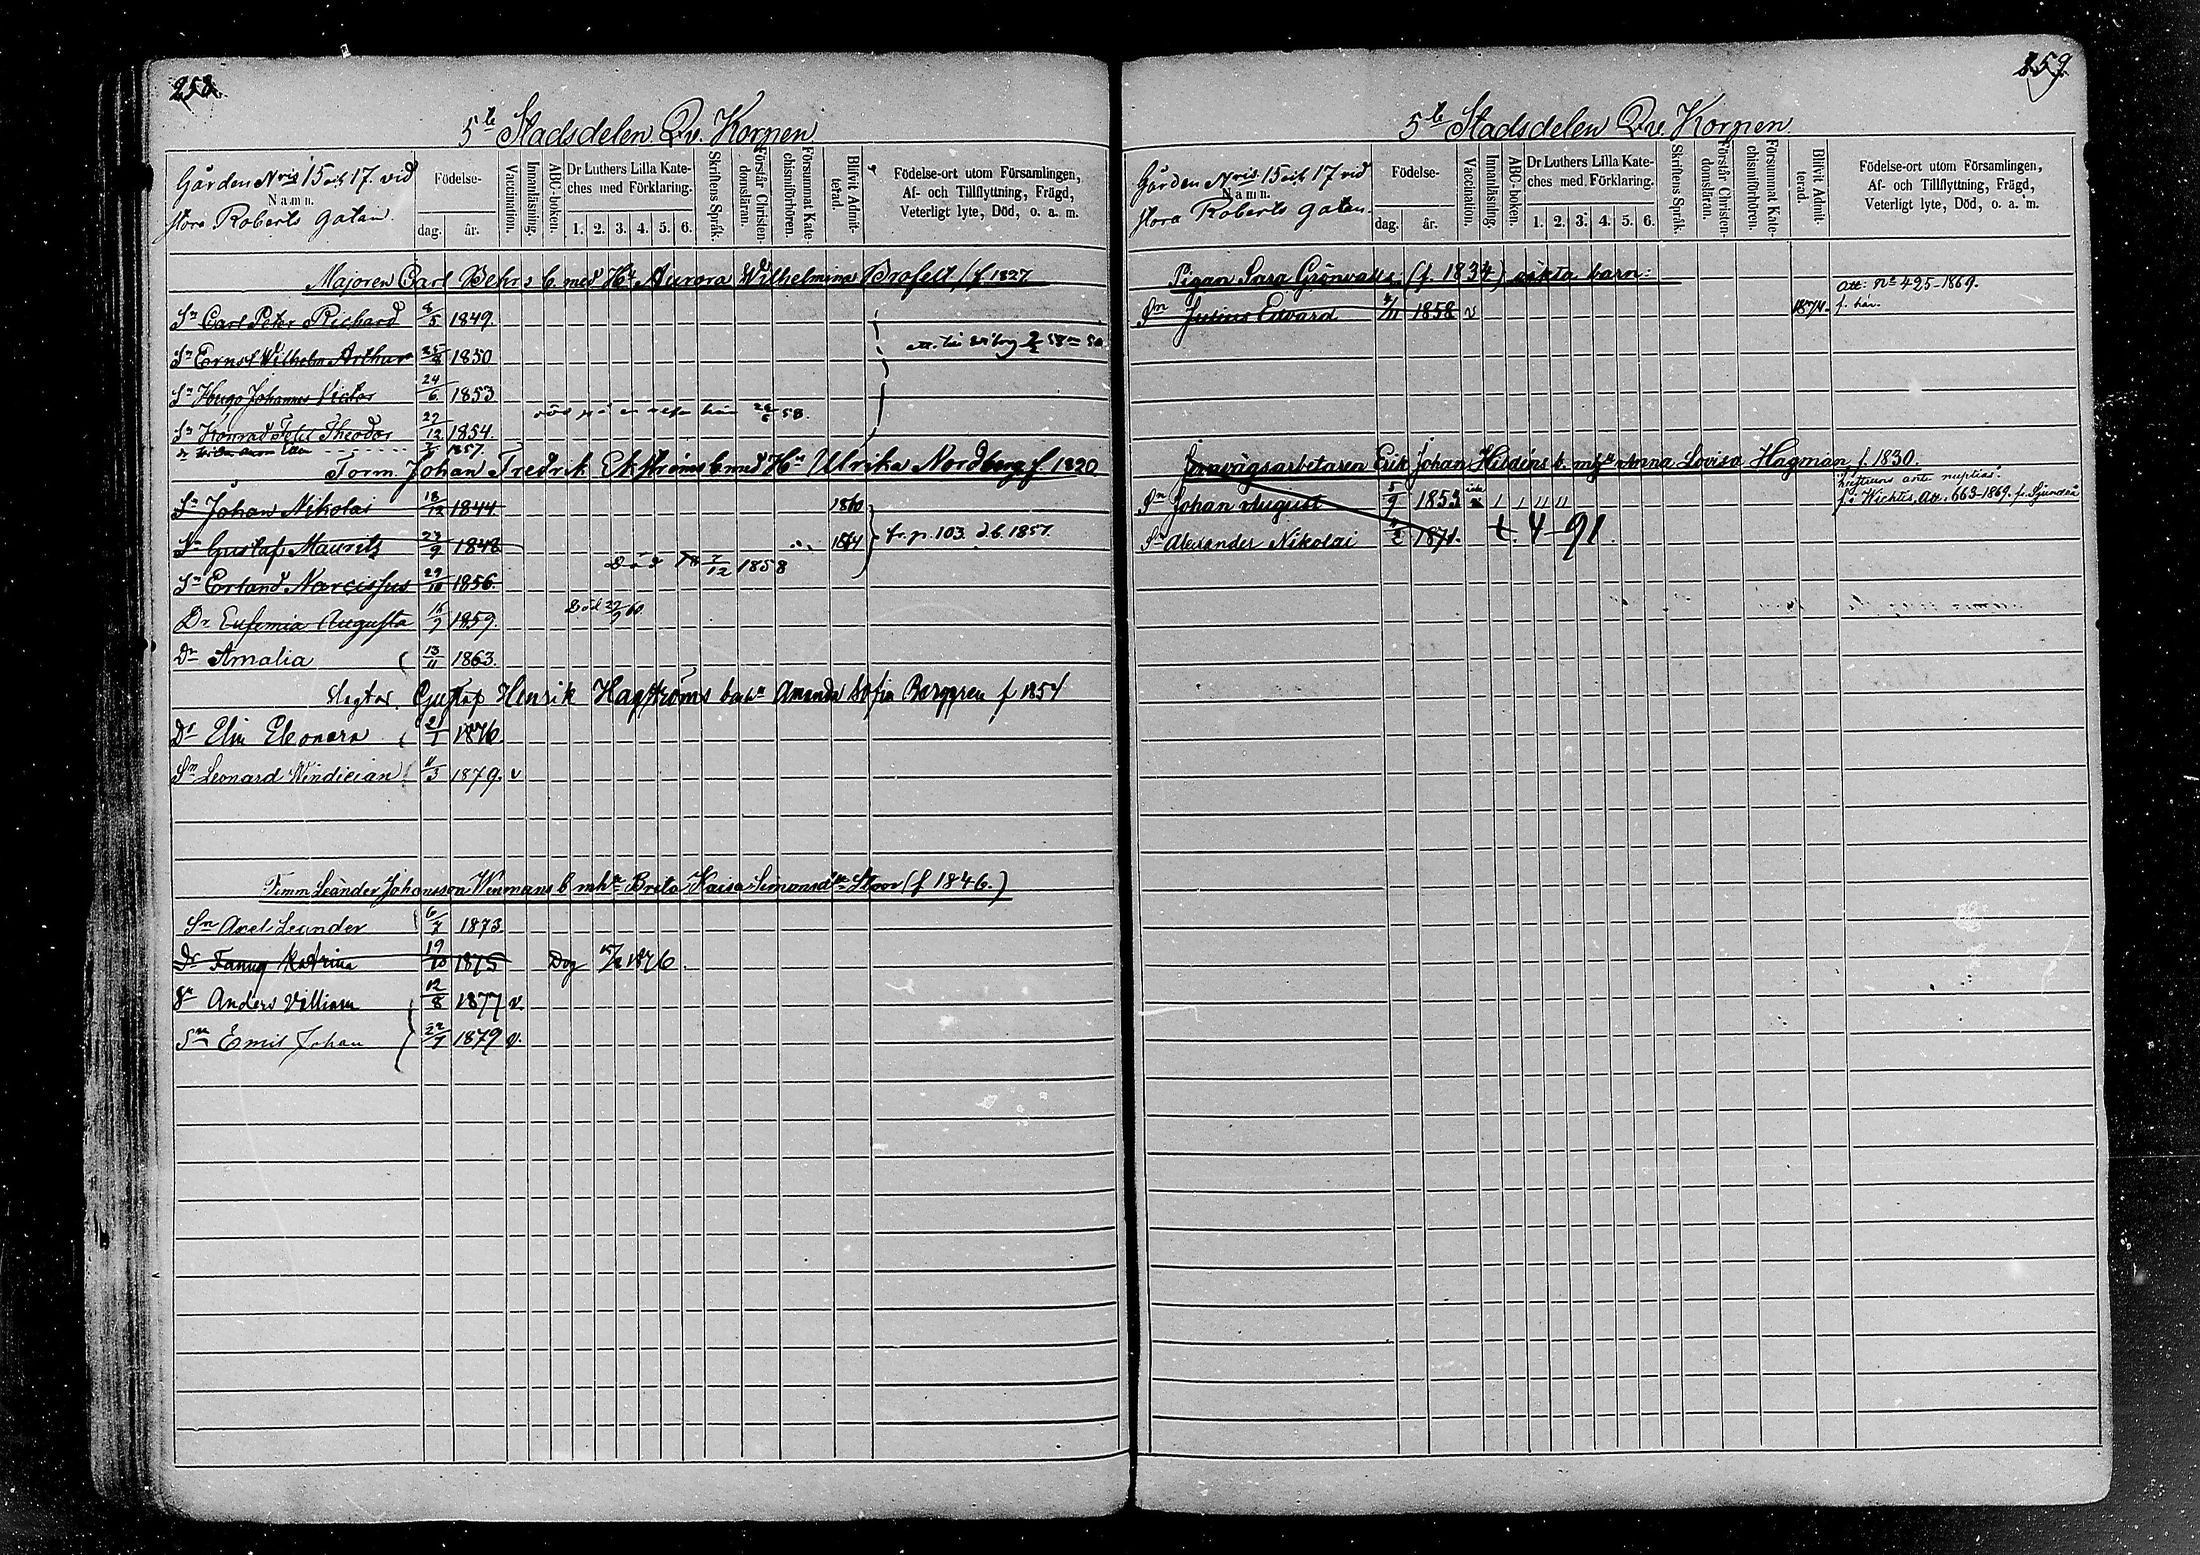 258.
5te Stadsdelen. Qv. Korpen
Gården Nris 15 och 17. vid
Namn.
stora Roberts gatan.
Födelse-
dag.
år.
Vaccination.
Innanläsning.
ABC-boken.
Dr Luthers Lilla Kate-
ches med Förklaring.
1. 2. 3. 4. 5. 6.
Skriftens Språk.
Förstår Christen-
domsläran.
Försummat Kate-
chismiförhören.
Blifvit Admit-
terad.
Födelse-ort utom Församlingen,
Af- och Tillflyttning, Frägd,
Veterligt lyte, Död, o. a. m.
Majoren Carl Behrs b. med Hu Aurora Wilhelmina Brofelt (f. 1827
Sn Carl Peter Richard 8/5 1849.
Sn Ernst Wilhelm Arthur 25/8 1850
Sn Hugo Johannes Victor 24/6 1853
Sn Konrad Felix Theodor 27/12 1854.
1857.
Torm. Johan Fredrik Ekströms b. med Hu Ulrika Nordberg f. 1820
Sn Johan Nikolai 18/12 1844 1860
Sn Gustaf Mauritz 23/9 1848 1864 fr. p. 103. d.b. 1857.
Död 7/12 1858
Sn Erland Narcissus 29/10 1856.
Död 22/9 60.
Dr Eufemia Augusta 15/7 1859.
Dr Amalia 13/11 1863.
Gustaf Henrik Hagströms b. Amanda Sofia Berggren f 1854
Dr Elin Eleonora 21/1 1876
Sn Leonard Windician 11/3 1879. v
Timm Leander Johansson Weemans b mhu Brita Kaisa Simonsdtr Stoor (f 1846.)
Sn Axel Leander 6/7 1873
Dr Fanny Katrina 19/10 1875 Dog 15/8 1876.
Sn Anders Villiam 12/8 1877 v.
Sn Emil Johan 22/7 1879 v.
259.
5te Stadsdelen Qv. Korpen
Gården Nris 15 och 17 vid
Namn.
stora Roberts gatan.
Födelse-
dag.
år.
Vaccination.
Innanläsning.
ABC-boken.
Dr Luthers Lilla Kate-
ches med. Förklaring.
1. 2. 3. 4. 5. 6.
Skriftens Språk.
Förstår Christen-
domsläran.
Försummat Kate-
chismiförhören.
Blifvit Admit-
terad.
Födelse-ort utom Församlingen,
Af- och Tillflyttning, Frägd,
Veterligt lyte, Död, o. a. m.
Pigan Sara Grönvalls (f. 1834) oäkta barn:
Att: No 425-1869.
f. här.
Sn Julius Edvard 1858 v 1874.
Jernvägsarbetaren Erik Johan Hildéns b. m. Anna Lovisa Hagman f. 1830.
ante nuptias.
Sn Johan August 5/9 1853 1 1 11 11 f. i Wichtis, Att. 663-1869. fr. Sjundeå
Sn Alexander Nikolai 1871. t. 4-91.